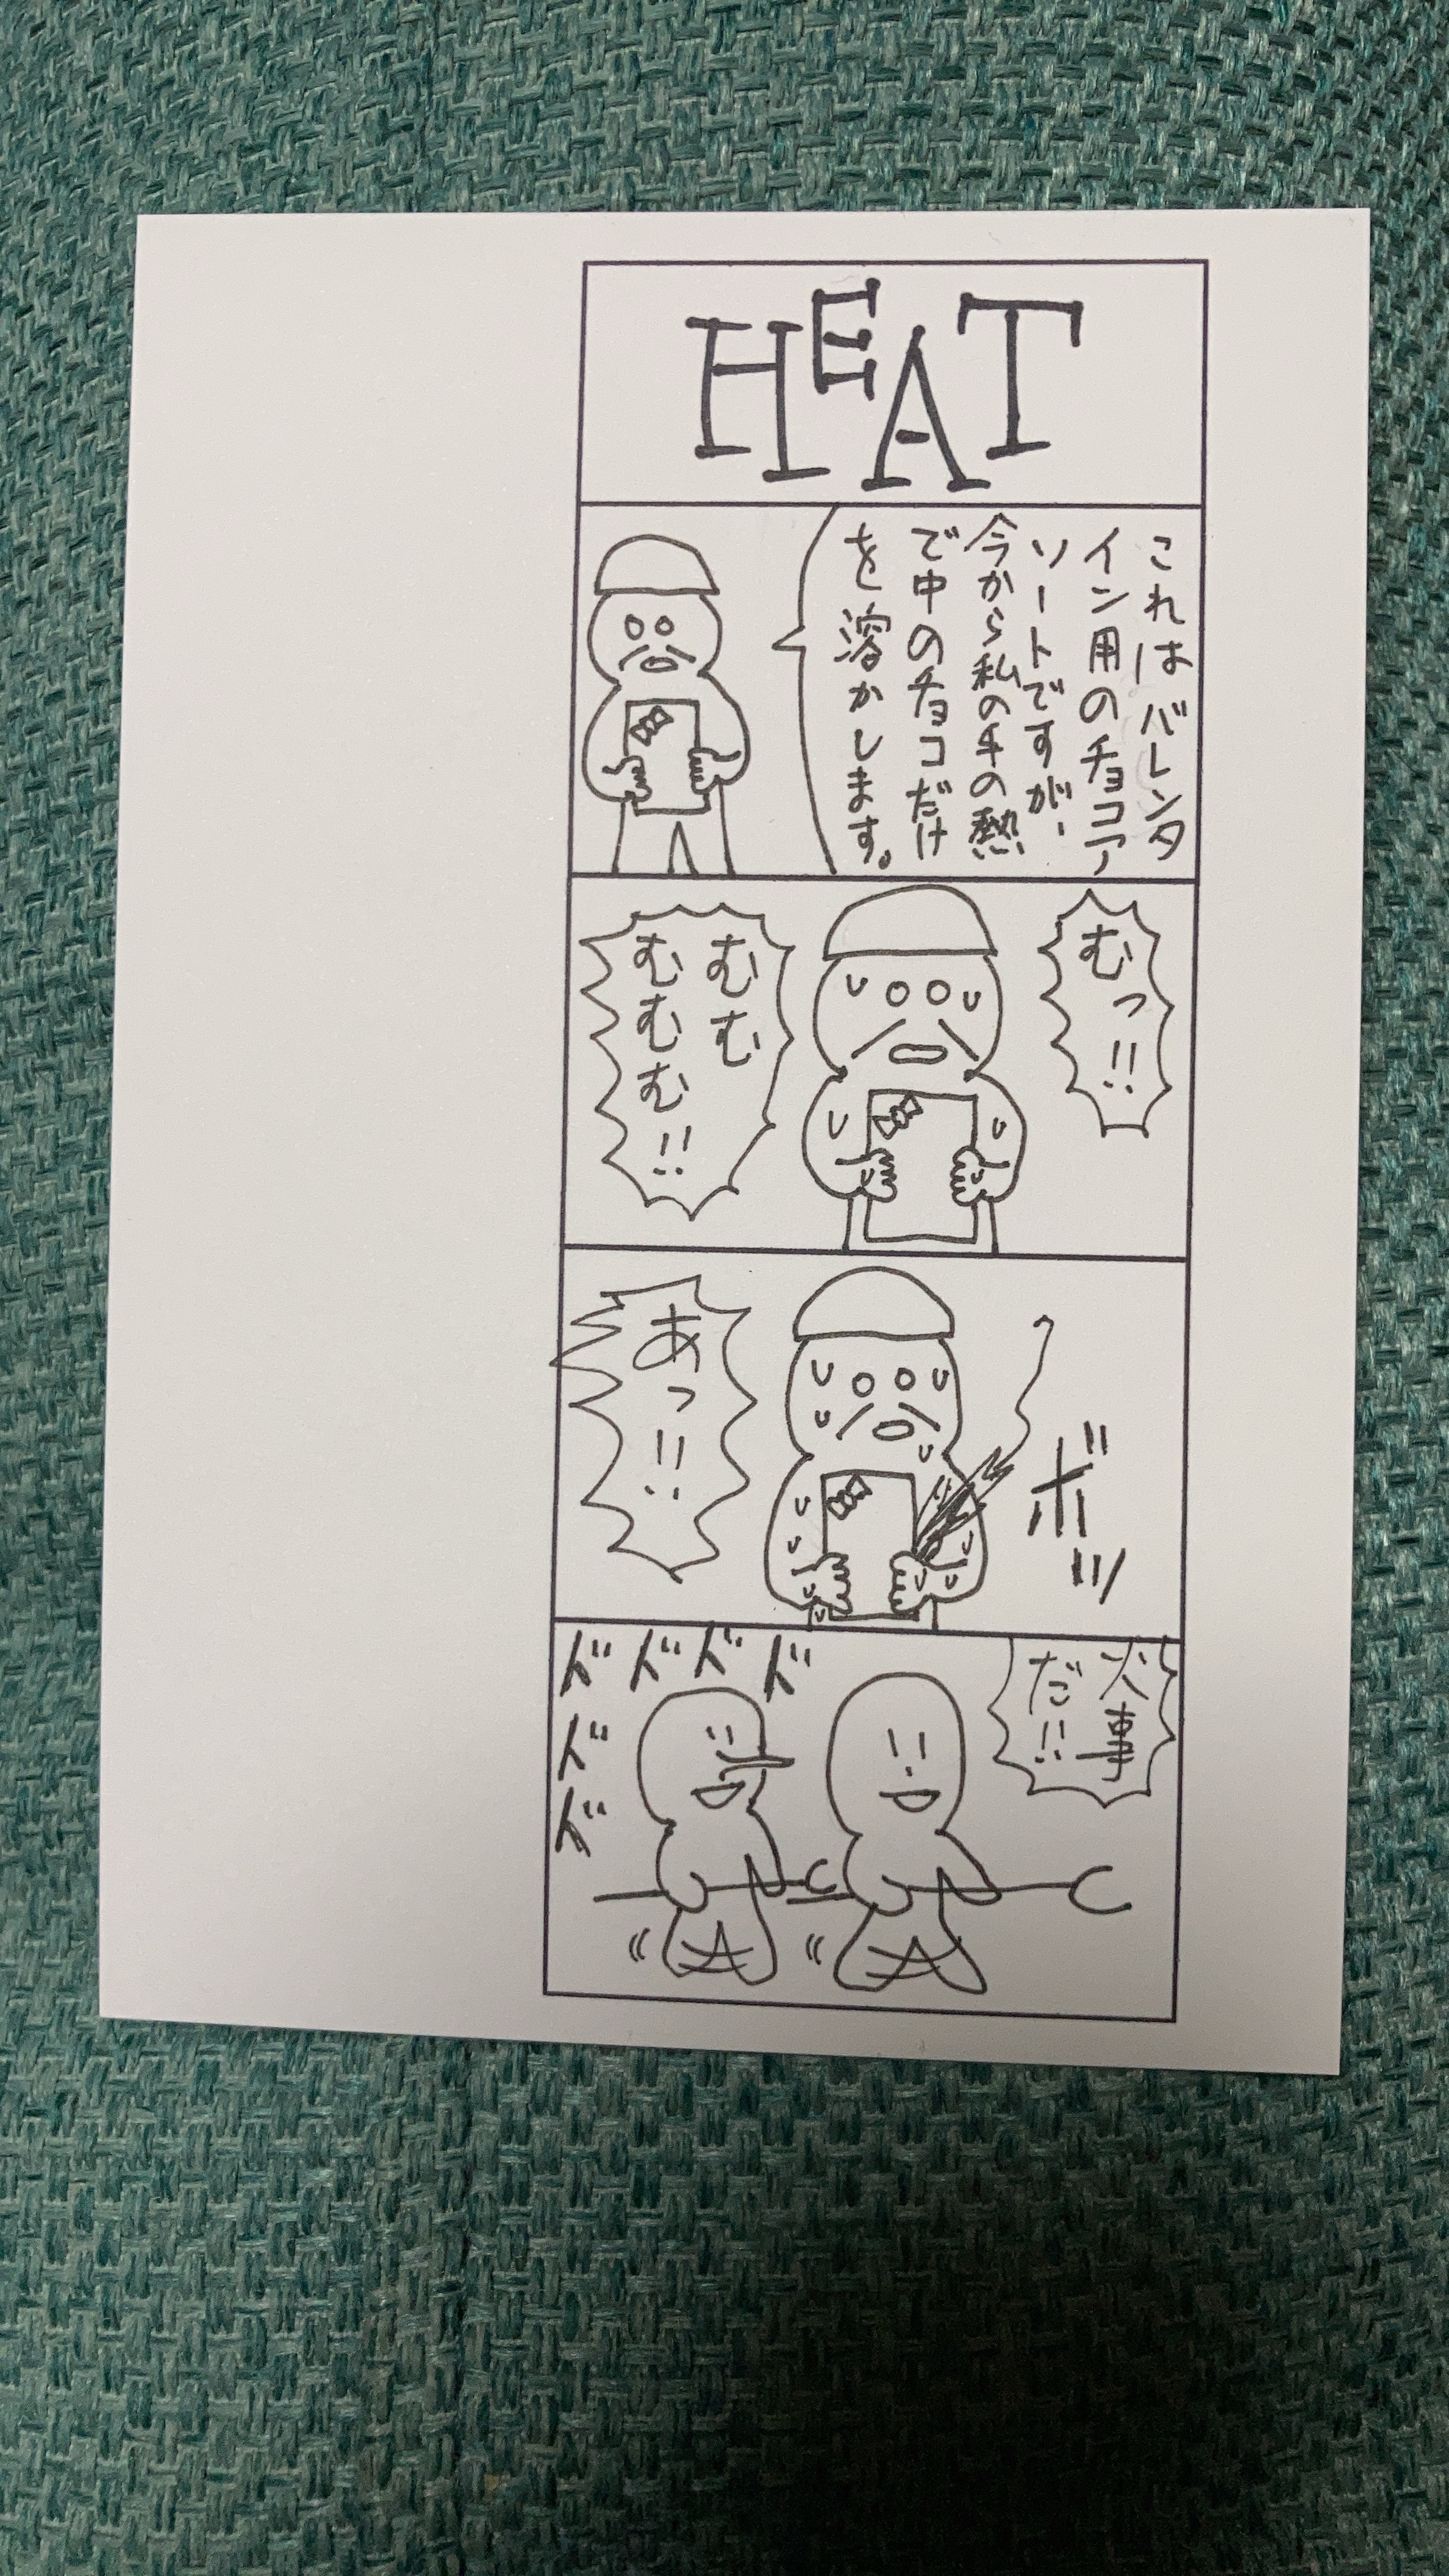 HEAT
これはバレンタ
イン用のチョコア
ソートですが、
今から私の手の熱
で中のチョコだけ
を溶かします。
むっ!!
むむ
むむむ!!
ボッ
あっ!!
火事
だ!!
ドドドド
ド
ド